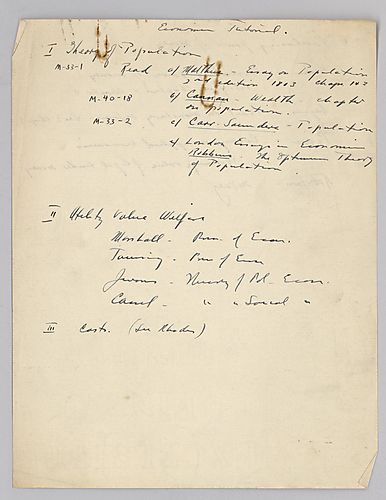 Economics Tutorial.
I Theory of Population
M-33-1 Read cf Malthus - Essay on Population
2nd edition 1803 Chaps 1+2
M-40-18 cf Cannan - Wealth chapter
on population.
M-33-2 cf Carr-Saunders - Population
cf London Essays in Economics
Robbins - The Optimum Theory
of Population
II Utility Value Welfare
Marshall - Prin. of Econ.
Taussig - Prin of Econ
Jevons - Theory of Pol. Econ.
Cassel - " " Social "
III Costs. (See Rhodes)